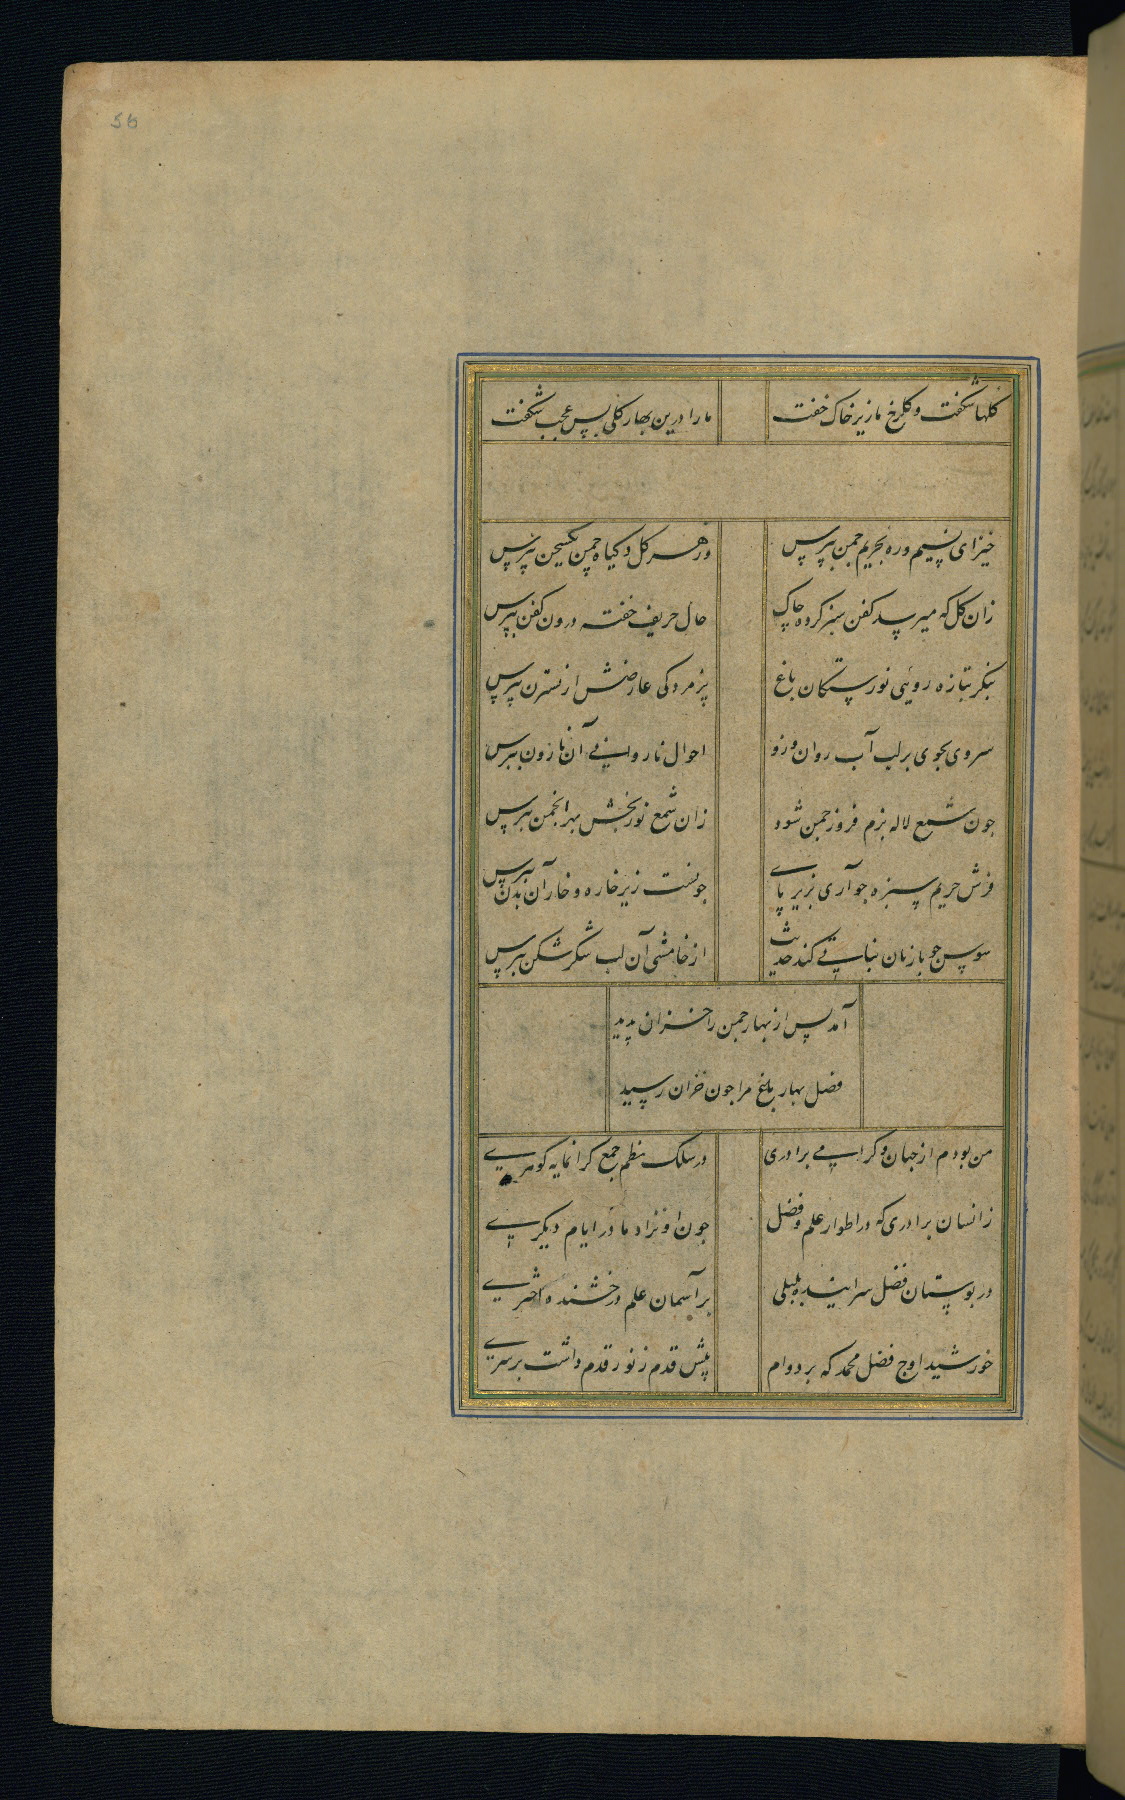 56
گلها شکفت و گلرخ ما زیر خاک خفت ما را درین بهار گلی بس عجب شکفت
خیز ای نسیم و ره بحریم چمن بپرس وز هر گل و گیاه چمن سخن بپرس
زان گل که میرسد کفن سبز کرده چاک حال حریف خفته درون کفن بپرس
بنگر بتازه روئی نورستگان باغ پژمردگی عارضش از نسترن بپرس
سروی بجوی بر لب آب روان و زو احوال ناروانی آن نارون بپرس
چون شمع لاله بزم فروز چمن شود زان شمع نوربخش بهر انجمن بپرس
فرش حریم سبزه چو آری بزیر پای چونست زیر خاره و خار آن بدن بپرس
سوسن چو با زبان نباتی کند حدیث از خامشی آن لب شکرشکن بپرس
آمد پس از بهار چمن را خزان پدید
فصل بهار باغ مرا چون خزان رسید
من بودم از جهان و گرامی برادری در سلک نظم جمع گرانمایه گوهری
زانسان برادری که در اطوار علم و فضل چون او نزاد مادر ایام دیگری
در بوستان فضل سراینده بلبلی بر آسمان علم درخشنده اختری
خورشید اوج فضل محمد که بر دوام پیش قدم ز نور قدم داشت برسری